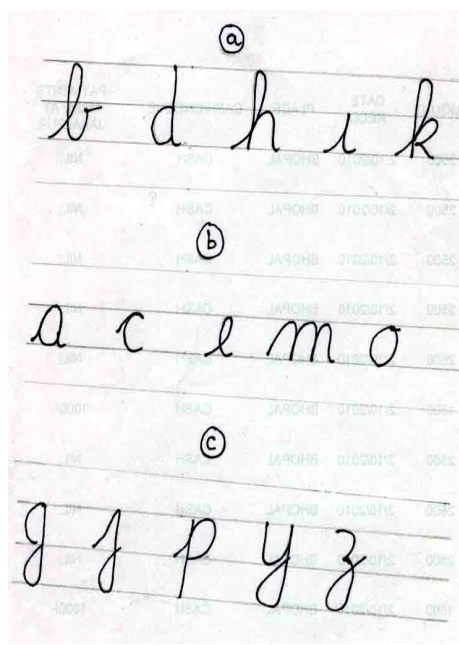 ⓐ
b d h i k
ⓑ
a c e m o
ⓒ
g j p y z